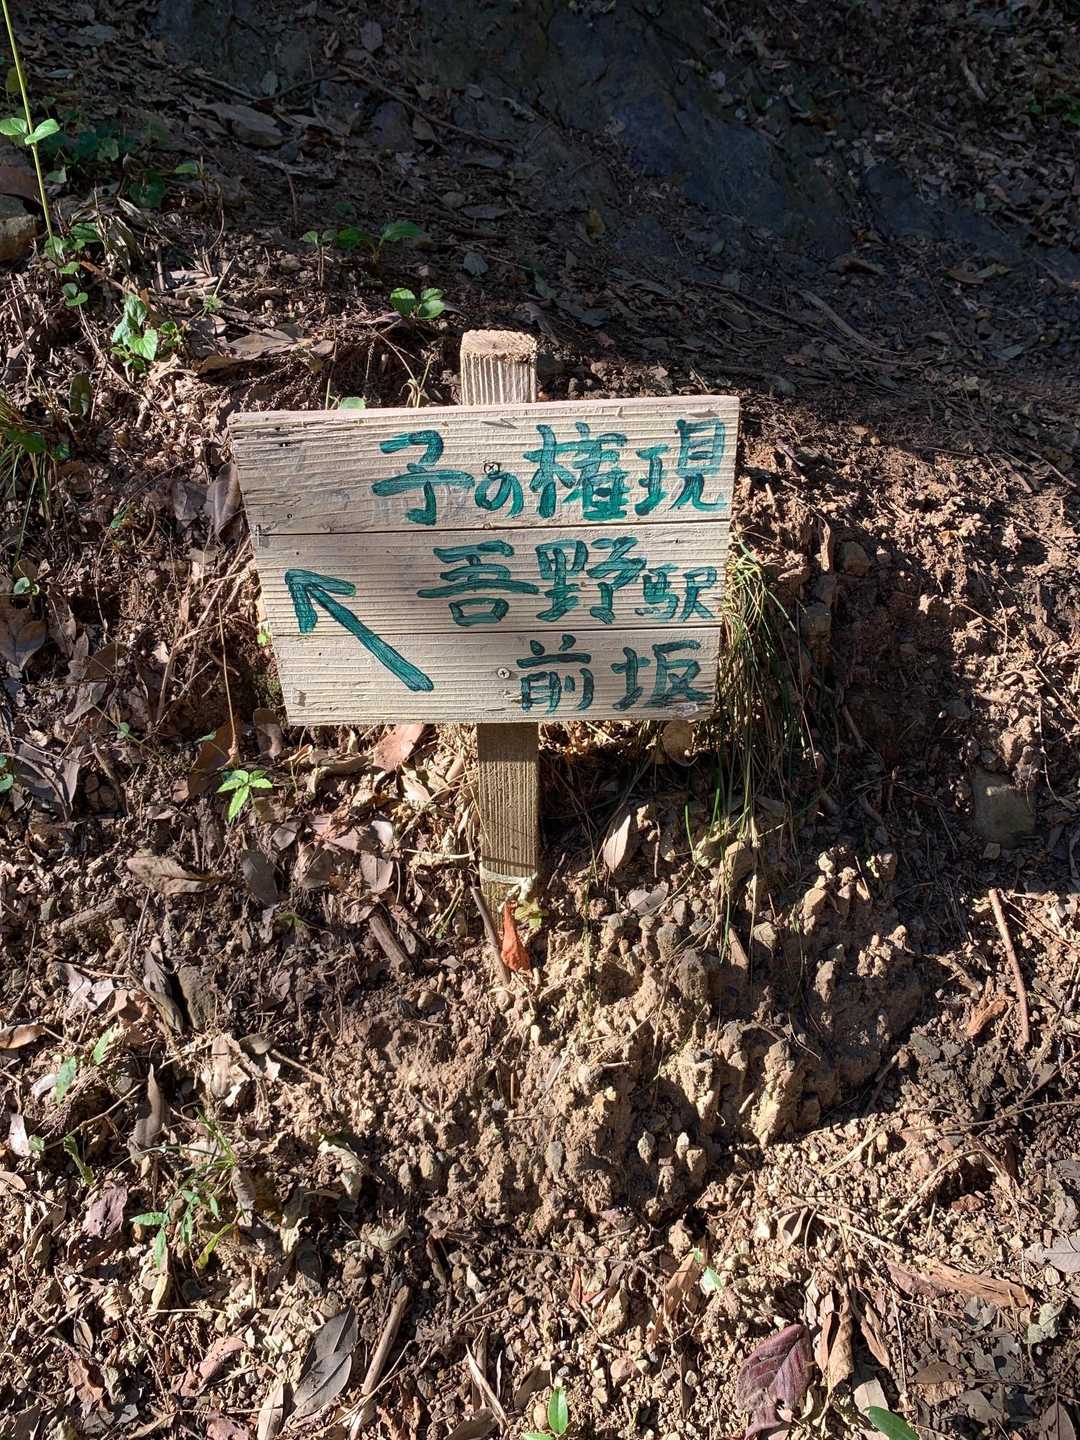 子の権現
吾野駅
前坂